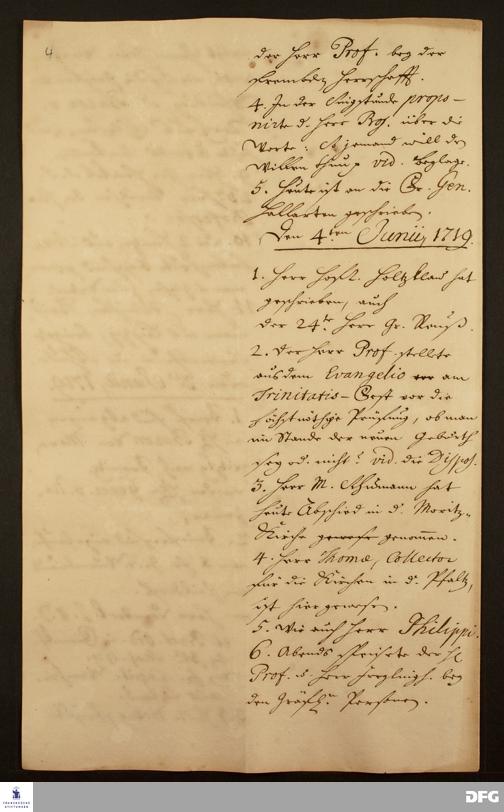 4
der Herr Prof. bey der
frembden Herrschafft.
4. In der Singstunde propo-
nirte d. Herr Prof. über die
Worte: So jemand will des
Willen thun p vid. Beylage.
5. Heute ist an die Gr. Gen.
Hallarten geschrieben.
Den 4ten Junii, 1719.
1. Herr Hofr. Holtzklau hat
geschrieben, auch
der 24te Herr Gr. Reuß.
2. Der Herr Prof. stellte
aus dem Evangelio am
Trinitatis-Fest vor die
höchstnöthige Prüfung, ob man
im Stande der neuen Geburth
sey od. nicht? vid. die Dispos.
3. Herr M. hat
heute Abschied in d. Moritz-
Kirche genommen.
4. Herr Thomæ, Collector
für die Kirchen in d. Pfaltz,
ist hier gewesen.
5. Wie auch Herr Philippi.
6. Abends speisete der H.
Prof. u. Herr bey
den Gräfl. Personen.
FRANCKESCHE STIFTUNGEN
DFG